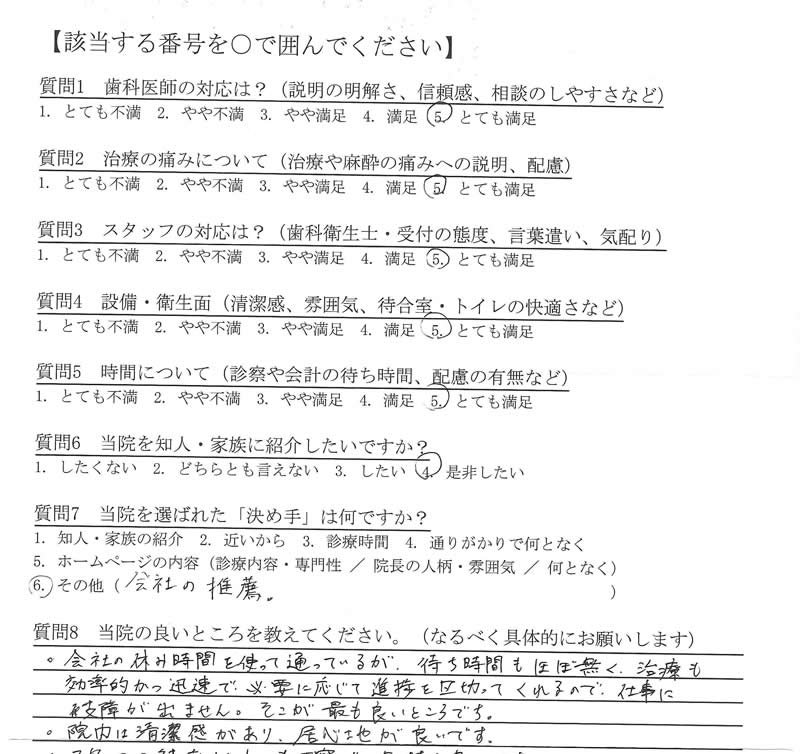 【該当する番号を○で囲んでください】
質問1 歯科医師の対応は？（説明の明解さ、信頼感、相談のしやすさなど）
1. とても不満 2. やや不満 3. やや満足 4. 満足 5. とても満足
質問2 治療の痛みについて（治療や麻酔の痛みへの説明、配慮）
1. とても不満 2. やや不満 3. やや満足 4. 満足 5. とても満足
質問3 スタッフの対応は？（歯科衛生士・受付の態度、言葉遣い、気配り）
1. とても不満 2. やや不満 3. やや満足 4. 満足 5. とても満足
質問4 設備・衛生面（清潔感、雰囲気、待合室・トイレの快適さなど）
1. とても不満 2. やや不満 3. やや満足 4. 満足 5. とても満足
質問5 時間について（診察や会計の待ち時間、配慮の有無など）
1. とても不満 2. やや不満 3. やや満足 4. 満足 5. とても満足
質問6 当院を知人・家族に紹介したいですか？
1. したくない 2. どちらとも言えない 3. したい 4. 是非したい
質問7 当院を選ばれた「決め手」は何ですか？
1. 知人・家族の紹介 2. 近いから 3. 診療時間 4. 通りがかりで何となく
5. ホームページの内容（診療内容・専門性 ／ 院長の人柄・雰囲気 ／ 何となく）
6. その他（会社の推薦。）
質問8 当院の良いところを教えてください。（なるべく具体的にお願いします）
○会社の休み時間を使って通っているが、待ち時間もほぼ無く、治療も
効率的かつ迅速で、必要に応じて進捗を区切ってくれるので、仕事に
支障が出ません。そこが最も良いところです。
○院内は清潔感があり、居心地が良いです。